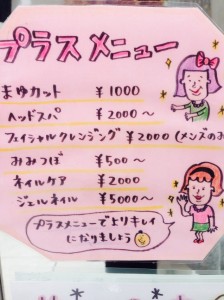 プラスメニュー
まゆカット ¥1000
ヘッドスパ ¥2000〜
フェイシャルクレンジング ¥2000 (メンズのみ
みみつぼ ¥500〜
ネイルケア ¥2000
ジェルネイル ¥5000〜
プラスメニューでよりキレイ
になりましょう